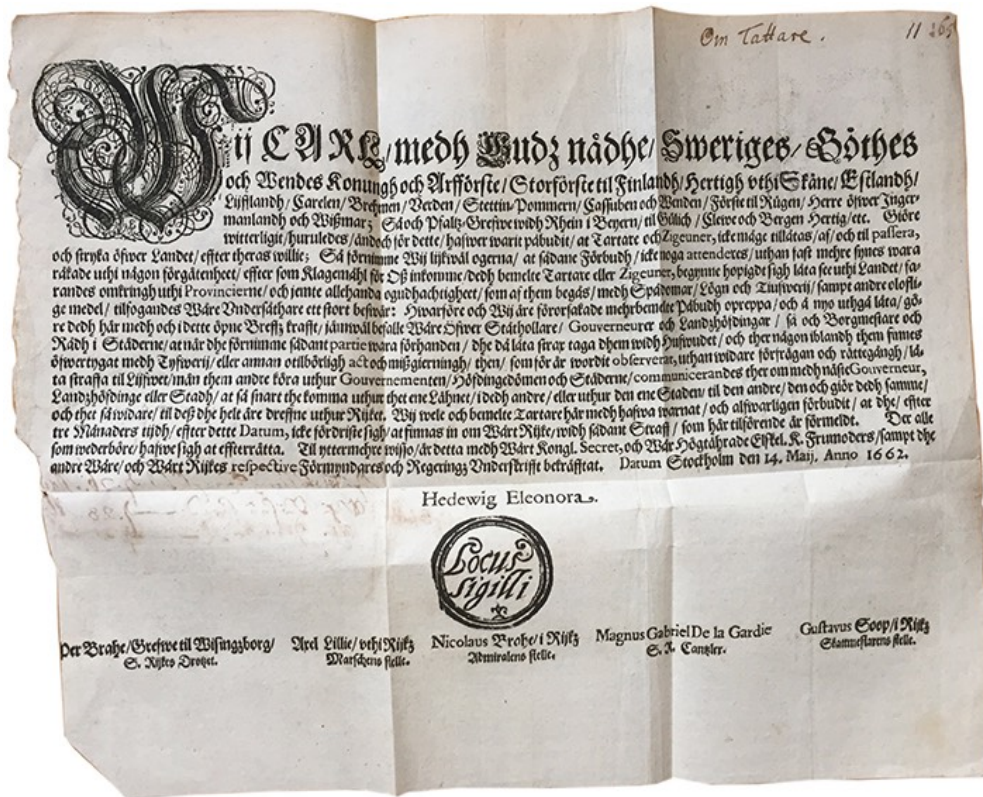 Om Tattare. 11 265
Wij CARL/ medh Gudz nådhe/ Sweriges/ Göthes
och Wendes Konungh och Arfförste/ Storförste til Finlandh/ Hertigh vthi Skåne/ Estlandh/
Lijfflandh/ Carelen/ Brehmen/ Verden/ Stettin-Pommern/ Cassuben och Wenden/ Förste til Rügen/ Herre öfwer Inger-
manlandh och Wißmar; Så och Pfaltz-Grefwe widh Rhein i Beyern/ til Gülich/ Clewe och Bergen Hertig/ etc. Giöre
witterligit/ huruledes/ ändoch för dette/ hafwer warit påbudit/ at Tartare och Zigeuner, icke måge tillåtas/ af/ och til passera,
och stryka öfwer Landet/ effter theras willie; Så förnimme Wij lijkwäl ogerna/ at sådane Förbudh/ icke noga attenderes/ uthan fast mehre synes wara
råkade uthi någon förgätenheet/ effter som Klagemåhl för Oß inkomme/ dedh bemelte Tartare eller Zigeuner, begynne hopigdt sigh låta see uthi Landet/ fa-
randes omkringh uthi Provincierne/ och jemte allehanda ogudhachtigheet/ som af them begås/ medh Spådomar/ Lögn och Tiufwerij/ sampt andre olofli-
ge medel/ tilfogandes Wåre Vndersåthare ett stort beswär: Hwarföre och Wij äre förorsakade mehrbemelte Påbudh opreppa/ och å nyo uthgå låta/ gö-
re dedh här medh och i dette öpne Breffz krafft/ jämwäl befalle Wåre Öfwer Ståthollare/ Gouverneurer och Landzhöfdingar/ så och Borgmestare och
Rådh i Städerne/ at när dhe förnimme sådant partie wara förhanden/ dhe då låta strax taga dhem widh Hufwudet/ och ther någon iblandh them finnes
öfwertygat medh Tyfwerij/ eller annan otilbörligh act och mißgierningh/ then/ som för är wordit observerat, uthan widare förfrågan och rättegångh/ lå-
ta straffa til Lijfwet/ män them andre köra uthur Gouvernementen/ Höfdingedömen och Städerne/ communicerandes ther om medh näste Gouverneur,
Landzhöfdinge eller Stadh/ at så snart the komma uthur thet ene Lähnet/ i dedh andre/ eller uthur den ene Staden/ til den andre/ den och giör dedh samme/
och thet så widare/ til deß dhe helt äre dreffne uthur Rijket. Wij wele och bemelte Tartare här medh hafwa warnat/ och alfwarligen förbudit/ at dhe/ effter
tre Månaders tijdh/ effter dette Datum, icke fördriste sigh/ at finnas in om Wårt Rijke/ widh sådant Straff/ som här tilförende är förmeldt. Der alle
som wederböre/ hafwe sigh at effterrätta. Til yttermehre wisso/ är detta medh Wårt Kongl. Secret, och Wår Högtährade Elskel. K. Frumoders/ sampt dhe
andre Wåre/ och Wårt Rijkes respective Förmyndares och Regeringz Vnderskrifft bekräfftat. Datum Stockholm den 14. Maij, Anno 1662.
Hedewig Eleonora.
Locus
sigilli
Per Brahe/ Grefwe til Wisingzborg/ Axel Lillie/ vthi Rijkz Nicolaus Brahe/ i Rijkz Magnus Gabriel De la Gardie Gustavus Soop/ i Rijkz
S. Rijkes Drotzet. Marschens stelle. Admiralens stelle. S. R. Cantzler. Skattmestarens stelle.